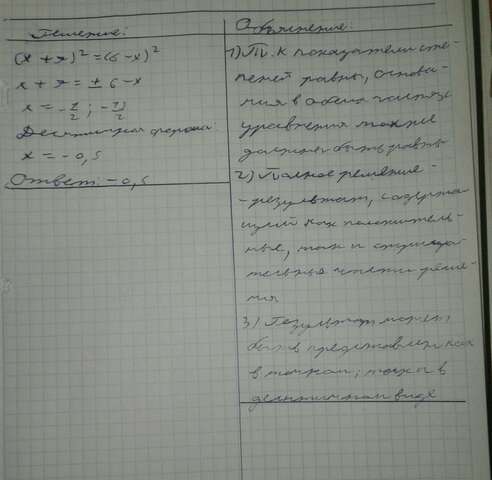 Решение:
(x + 7)² = (6 - x)²
x + 7 = ± 6 - x
x = - 1/2 ; - 13/2
Десятичная форма:
x = - 0,5
Ответ: - 0,5
Объяснение:
1) Т. к показатели сте-
пеней равны, основа-
ния в обеих частях
уравнения также
должны быть равны
2) Полное решение -
- результат, содержа-
щий как положитель-
ные, так и отрица-
тельные части реше-
ния
3) Результат может
быть представлен как
в точном, так и в
десятичном виде